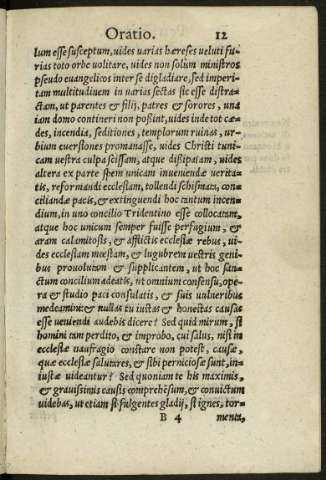 Oratio. 12
lum esse susceptum, uides uarias hæreses ueluti fu-
rias toto orbe uolitare, uides non solùm ministros
pseudo euangelicos inter se digladiare, sed imperi-
tam multitudinem in uarias sectas sic esse distra-
ctam, ut parentes & filij, patres & sorores, una
iam domo contineri non possint, uides inde tot cæ-
des, incendia, seditiones, templorum ruinas, ur-
bium euersiones promanasse, uides Christi tuni-
cam uestra culpa scissam, atque dissipatam, uides
altera ex parte spem unicam inueniendæ uerita-
tis, reformandi ecclesiam, tollendi schismata, con-
ciliandæ pacis, & extinguendi hoc tantum incen-
dium, in uno concilio Tridentino esse collocatam,
atque hoc unicum semper fuisse perfugium, &
aram calamitosis, & afflictis ecclesiæ rebus, ui-
des ecclesiam mœstam, & lugubrem uestris geni-
bus prouolutam & supplicantem, ut hoc san-
ctum concilium adeatis, ut omnium consensu, ope-
ra & studio paci consulatis, & suis uulneribus
medeamini: & nullas tu iustas & honestas causas
esse ueniendi audebis dicere? Sed quid mirum, si
homini tam perdito, & improbo, cui salus, nisi in
ecclesiæ naufragio constare non potest, causæ,
quæ ecclesiæ salutares, & sibi perniciosæ sunt, in-
iustæ uideantur? Sed quoniam te his maximis,
& grauissimis causis comprehēsum, & conuictum
uidebas, ut etiam si fulgentes gladij, si ignes, tor-
B 4 menta,